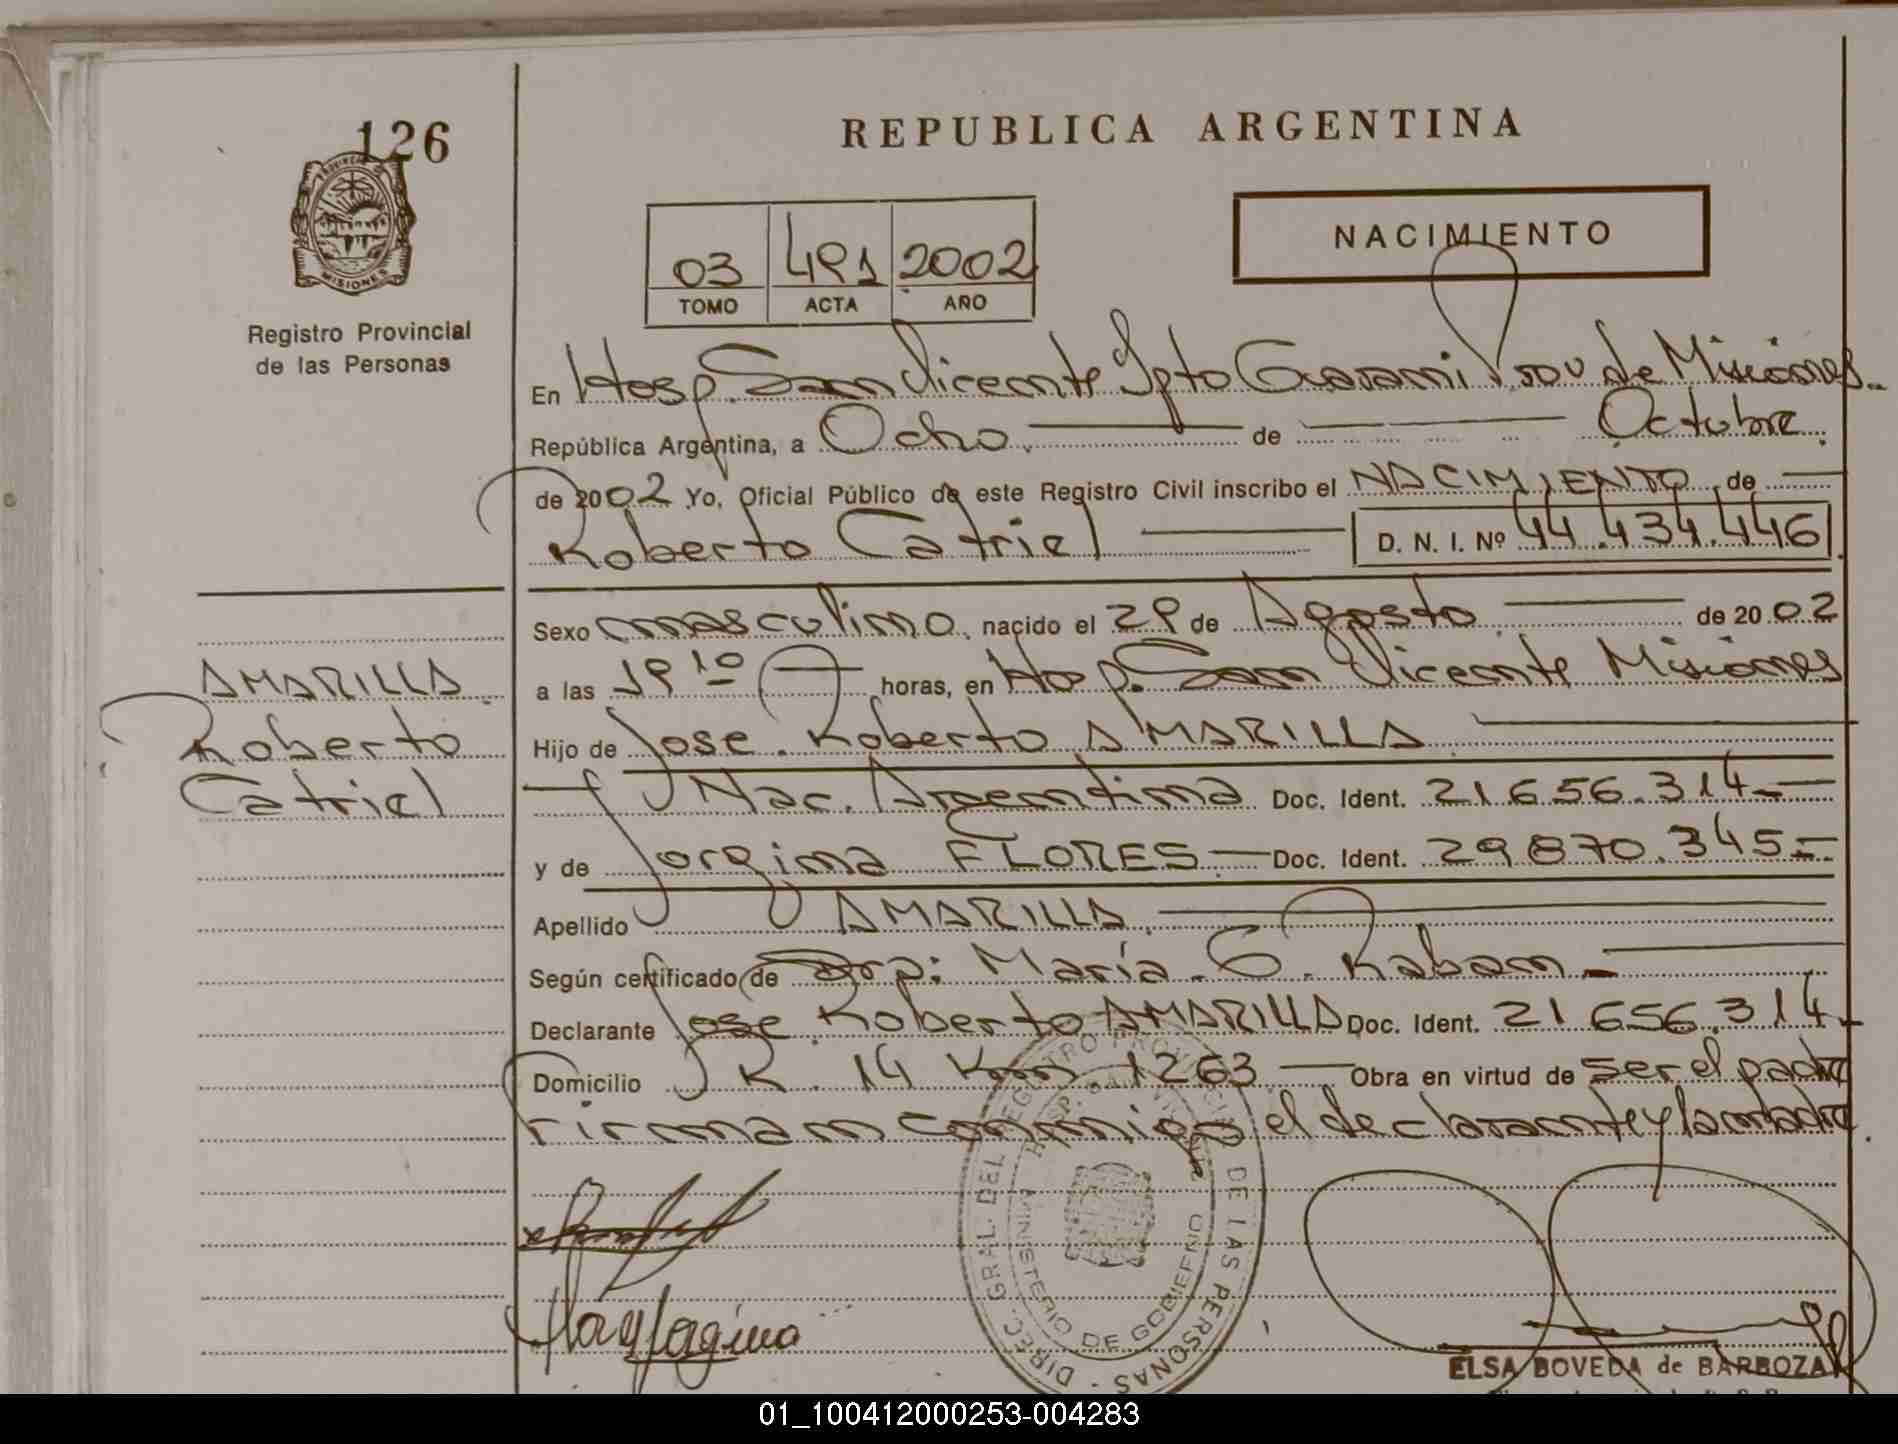 126
REPUBLICA ARGENTINA
PROVINCIA DE
MISIONES
Registro Provincial
de las Personas
03 491 2002
TOMO ACTA AÑO
NACIMIENTO
En Hosp. San Vicente Dpto Guarani Prov de Misiones.
República Argentina, a Ocho de Octubre
de 2002 Yo, Oficial Público de este Registro Civil inscribo el NACIMIENTO de
Roberto Catriel D. N. I. Nº 44.434.446
Sexo masculino nacido el 29 de Agosto de 2002
a las 19 10 horas, en Hosp. San Vicente Misiones
AMARILLA
Roberto
Catriel
Hijo de Jose Roberto AMARILLA
Nac. Argentina Doc. Ident. 21.656.314
y de Jorgina FLORES Doc. Ident. 29.870.345
Apellido AMARILLA
Según certificado de Drp: María G. Raban
Declarante Jose Roberto AMARILLA Doc. Ident. 21.656.314
Domicilio R. 14 Km 1263 Obra en virtud de ser el padre
Firman conmigo el declarante y la madre.
DIREC. GRAL. DEL REGISTRO PROVINCIAL DE LAS PERSONAS
HOSP. SAN VICENTE
MINISTERIO DE GOBIERNO
ELSA BOVEDA de BARBOZA
01_100412000253-004283